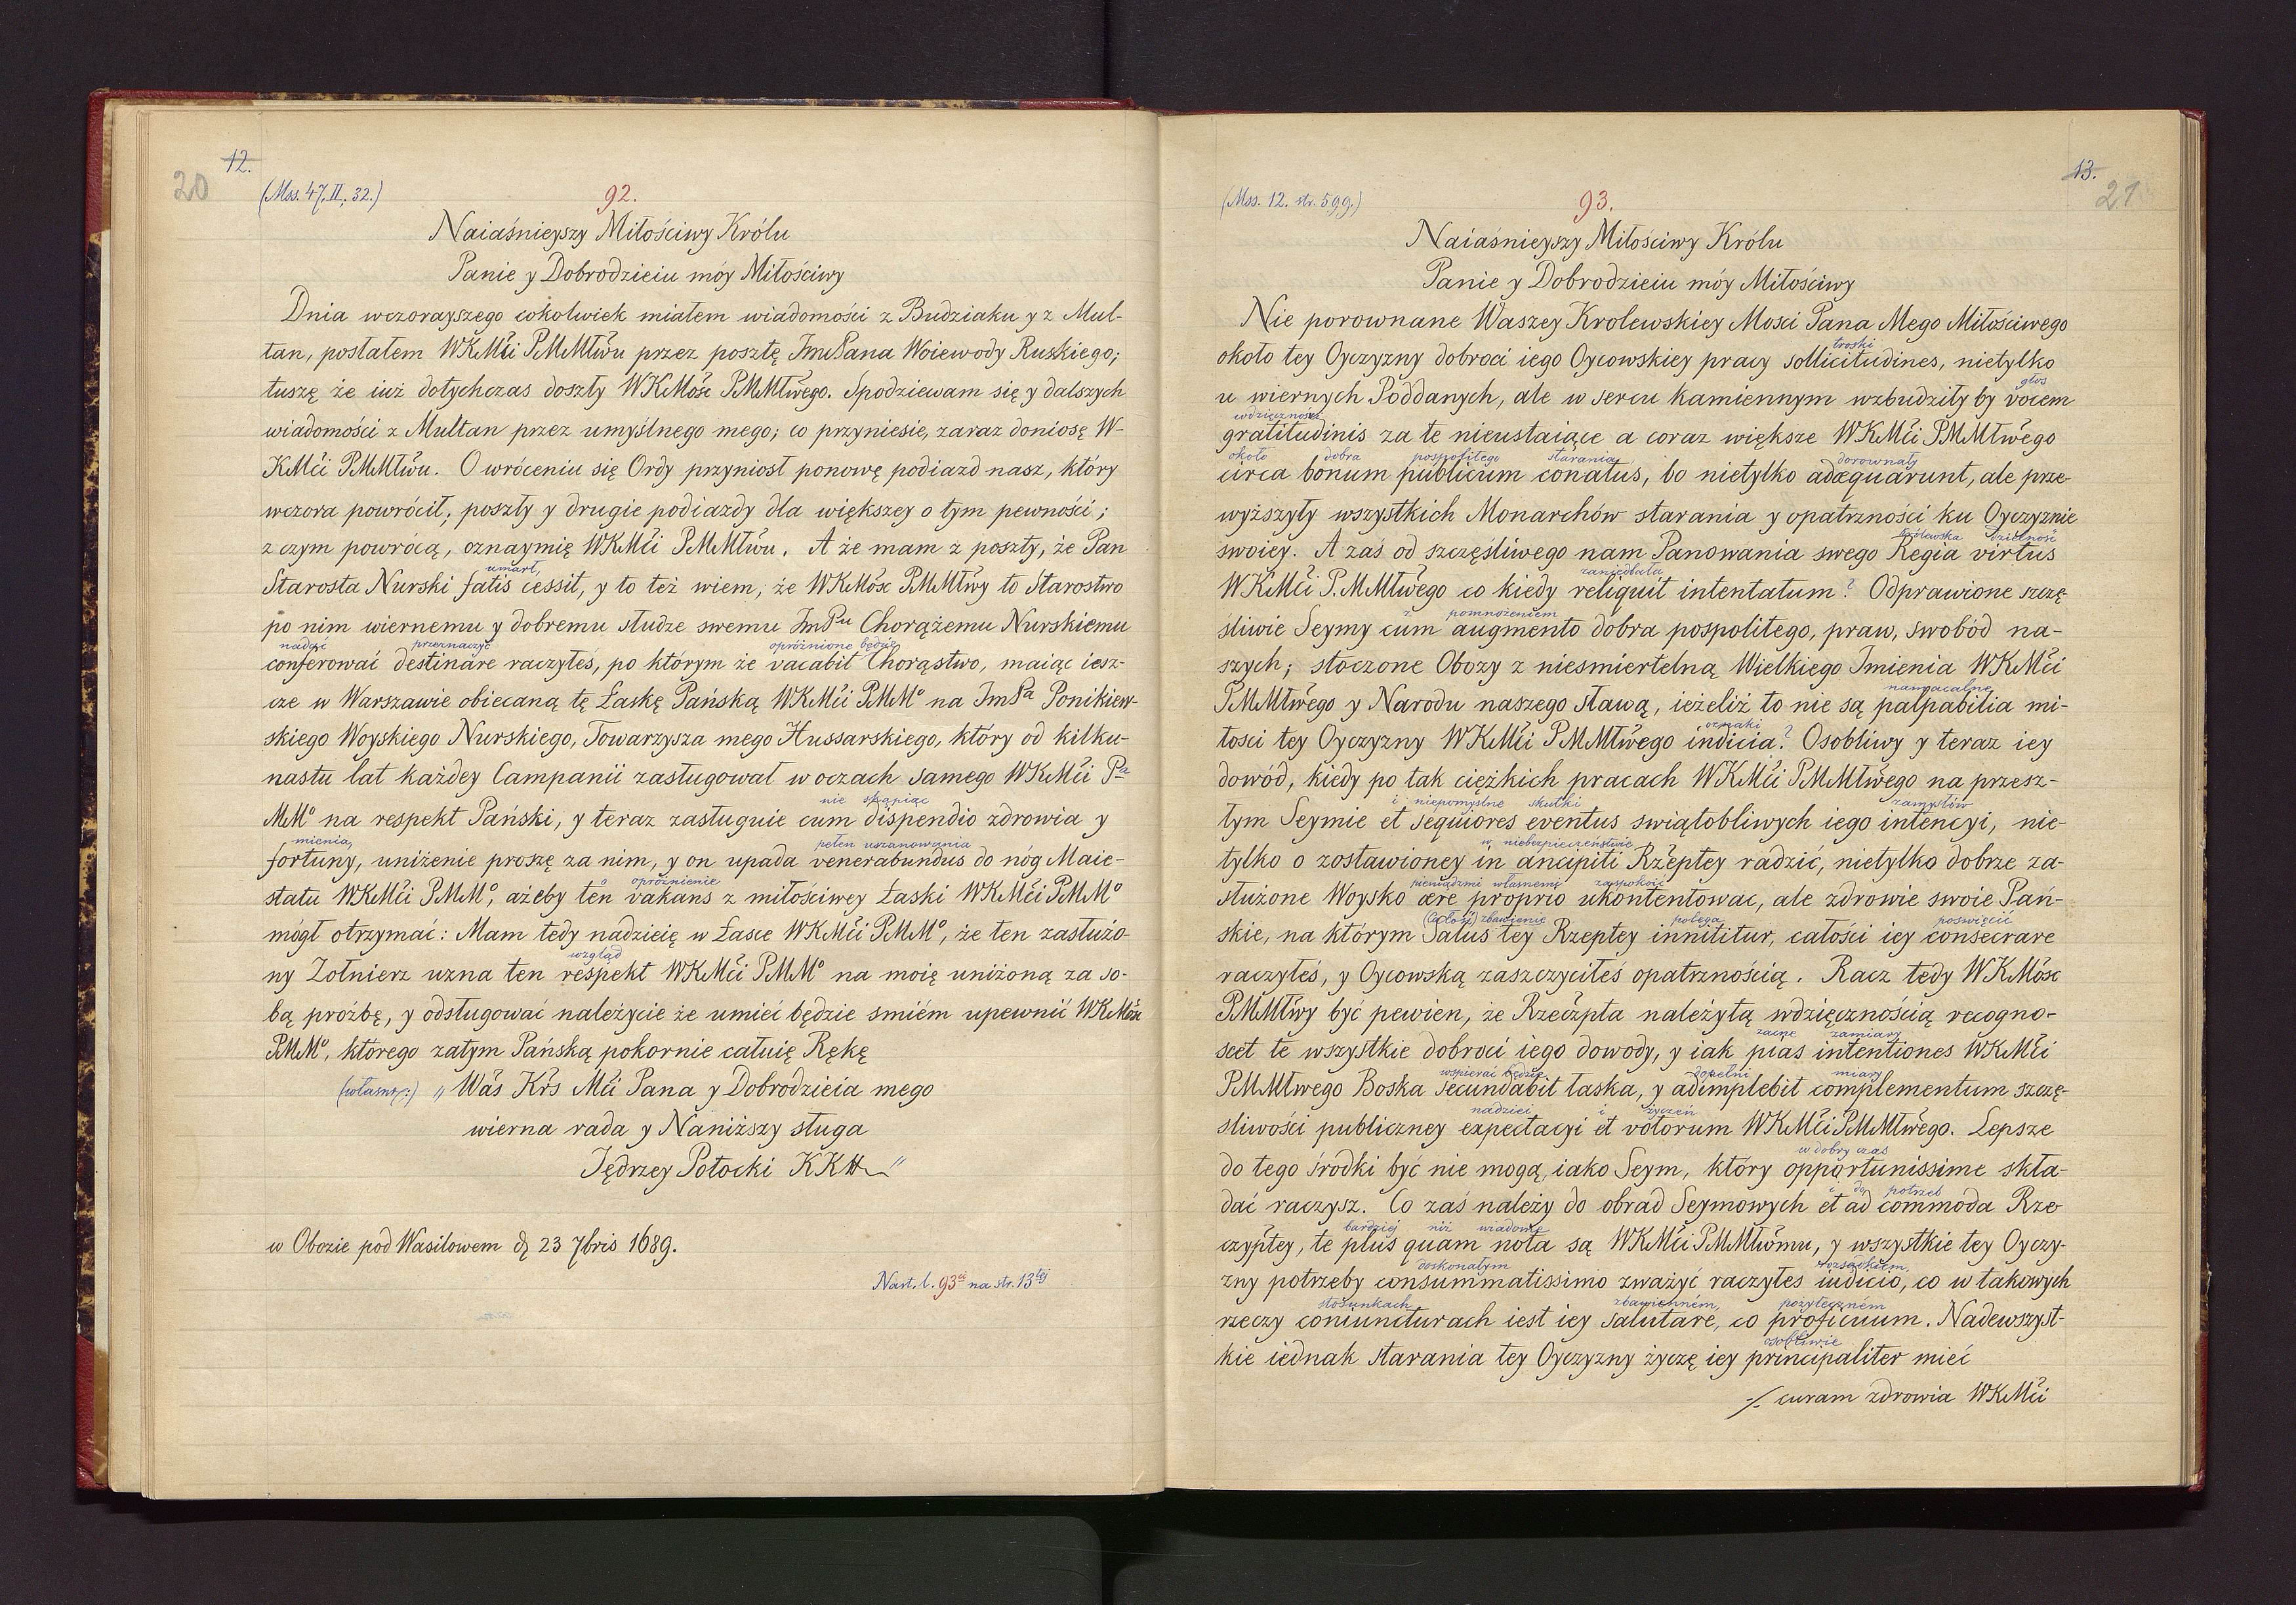 20
12.
(Mss. 47, II, 32.)
92.
Naiaśnieyszy Miłościwy Królu
Panie y Dobrodzieiu móy Miłościwy
Dnia wczorayszego cokolwiek miałem wiadomości z Budziaku y z Mul-
tan, posłałem WKMći PMMłwu przez posztę JmśPana Woiewody Ruskiego;
tuszę że iuż dotychczas doszły WKMość PMMłwego. Spodziewam się y dalszych
wiadomości z Multan przez umyślnego mego; co przyniesie, zaraz doniosę W-
KMći PMMłwu. O wróceniu się Ordy przyniosł ponowę podiazd nasz, który
wczora powrócił; poszły y drugie podiazdy dla większey o tym pewności;
z czym powrócą, oznaymię WKMći PMMłwu. A że mam z poszty, że Pan
umarł,
Starosta Nurski fatis cessit, y to też wiem, że WKMość PMMłwy to Starostwo
po nim wiernemu y dobremu słudze swemu JmPu Chorążemu Nurskiemu
nadać przeznaczyć opróżnione będzie
conferować destinare raczyłeś, po którym że vacabit Chorąstwo, maiąc iesz-
cze w Warszawie obiecaną tę Łaskę Pańską WKMći PMMo na JmPa Ponikiew-
skiego Woyskiego Nurskiego, Towarzysza mego Hussarskiego, który od kilku-
nastu lat każdey Campanii zasługował w oczach samego WKMći Pa
nie skąpiąc
MMo na respekt Pański, y teraz zasługuie cum dispendio zdrowia y
mienia, pełen uszanowania
fortuny, uniżenie proszę za nim, y on upada venerabundus do nóg Maie-
opróżnienie
statu WKMći PMMo, ażeby ten vakans z miłościwey Łaski WKMći PMMo
mógł otrzymać: Mam tedy nadzieię w Łasce WKMći PMMo, że ten zasłużo-
wzgląd
ny Żołnierz uzna ten respekt WKMći PMMo na moię uniżoną za so-
bą proźbę, y odsługować należycie że umieć będzie smiém upewnić WKMość
PMMo, którego zatym Pańską pokornie całuię Rękę
(własnor:) „Wás Krs Mći Pana y Dobrodzieia mego
wierna rada y Naniższy sługa
Jędrzey Potocki KKH"
w Obozie pod Wasilowem d. 23 7bris 1689.
Nast. l. 93ci na str. 13tej
13.
21
(Mss. 12. str. 599.)
93.
Naiaśnieyszy Miłościwy Królu
Panie y Dobrodzieiu móy Miłościwy
Nie porownane Waszey Krolewskiey Mosci Pana Mego Miłościwego
troski
około tey Oyczyzny dobroci iego Oycowskiey pracy sollicitudines, nietylko
głos
u wiernych Poddanych, ale w sercu kamiennym wzbudziły by vocem
wdzięczności
gratitudinis za te nieustaiące a coraz większe WKMći PMMłwego
około dobra pospolitego starania, dorownały
circa bonum publicum conatus, bo nietylko adæquarunt, ale prze-
wyższyły wszystkich Monarchów starania y opatrzności ku Oyczyznie
królewska dzielność
swoiey. A zaś od szczęśliwego nam Panowania swego Regia virtus
zaniedbała
WKMći P.MMłwego co kiedy reliquit intentatum? Odprawione szczę
z pomnożeniem
śliwie Seymy cum augmento dobra pospolitego, praw, swobód na-
szych; stoczone Obozy z niesmiertelną Wielkiego Imienia WKMći
namacalne
PMMłwego y Narodu naszego sławą, ieżeliż to nie są palpabilia mi-
oznaki
łosci tey Oyczyzny WKMći PMMłwego indicia? Osobliwy y teraz iey
dowód, kiedy po tak ciężkich pracach WKMći PMMłwego na przesz-
i niepomyślne skutki zamysłów
łym Seymie et sequiores eventus swiątobliwych iego intencyi, nie-
w niebezpieczeństwie
tylko o zostawioney in ancipiti Rzeptey radzić, nietylko dobrze za-
pieniądzmi własnemi zaspokoić
służone Woysko ære proprio ukontentować, ale zdrowie swoie Pań-
(Całość) zbawienie polega poswięcić
skie, na którym Salus tey Rzeptey innititur, całości iey consecrare
raczyłeś, y Oycowską zaszczyciłeś opatrznością. Racz tedy WKMość
PMMłwy być pewien, że Rzeczpta należytą wdzięcznością recogno-
zacne zamiary
scet te wszystkie dobroci iego dowody, y iak pias intentiones WKMći
wspierać będzie dopełni miary
PMMłwego Boska secundabit łaska, y adimplebit complementum szczę-
nadziei i życzeń
sliwości publiczney expectacyi et votorum WKMći PMMłwego. Lepsze
w dobry czas
do tego środki być nie mogą, iako Seym, który opportunissime skła-
i do potrzeb
dać raczysz. Co zaś należy do obrad Seymowych et ad commoda Rze
bardziej niż wiadome
czyptey, te plus quam nota są WKMći PMMłwomu, y wszystkie tey Oyczy-
doskonałym rozsądkiem,
zny potrzeby consummatissimo zważyć raczyłes iudicio, co w takowych
stosunkach zbawienném, pożyteczném
rzeczy coniuncturach iest iey salutare, co proficuum. Nadewszyst-
osobliwie
kie iednak starania tey Oyczyzny życzę iey principaliter mieć
./. curam zdrowia WKMći